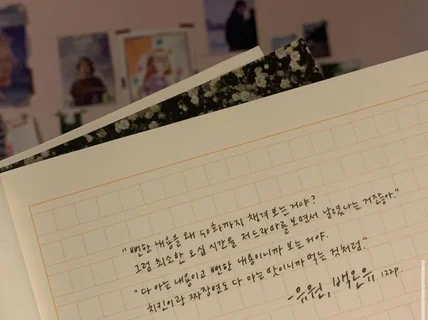 "뻔한 내용을 왜 50화까지 챙겨 보는 거야?
그럼 최소한 오십 시간을 저 드라마를 보면서 날렸다는 거잖아."
"다 아는 내용이고 뻔한 내용이니까 보는 거야.
치킨이랑 짜장면도 다 아는 맛이니까 먹는 것처럼."
-유원, 백온유 122p.